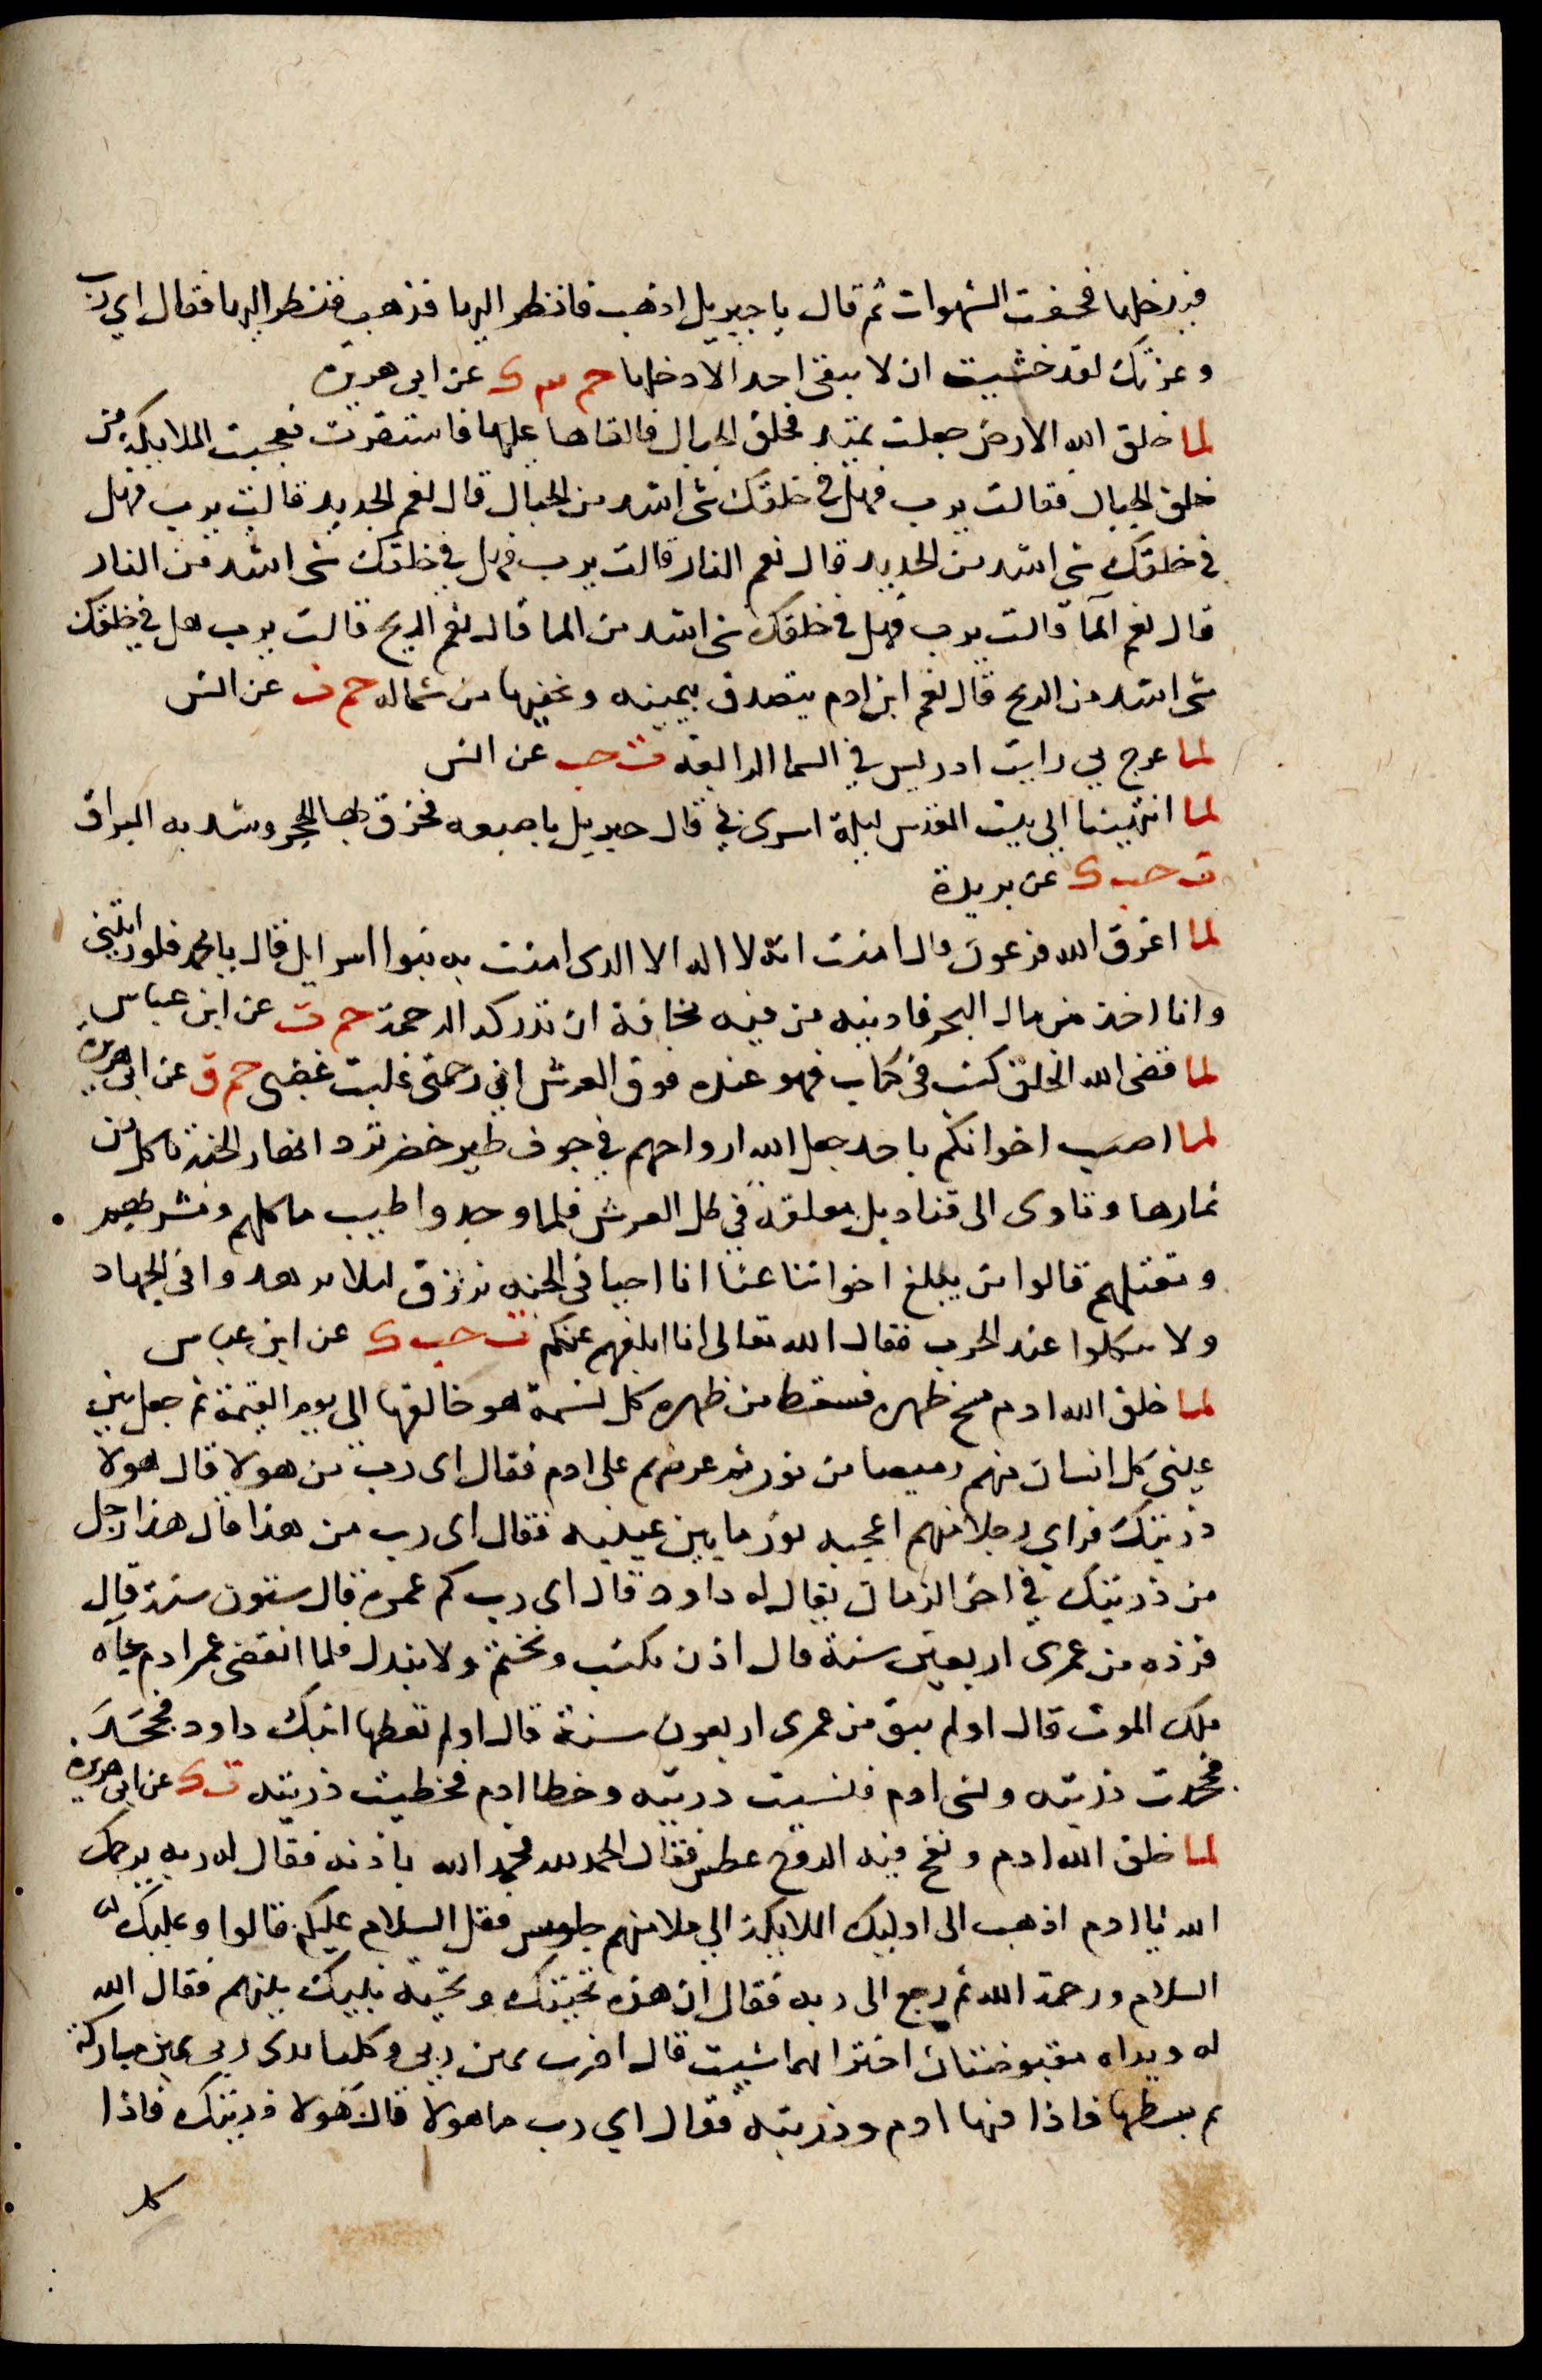 فيدخلها فحفت الشهوات ثم قال يا جبريل اذهب فانظر اليها فذهب فنظر اليها فقال اي رب
وعزتك لقد خشيت ان لا يبقى احد الا دخلها حم ٣ ك عن ابي هريرة
لما خلق الله الارض جعلت تميد فخلق الجبال فالقاها عليها فاستقرت فعجبت الملايكة من
خلق الجبال فقالت يرب فهل في خلقك شى اشد من الجبال قال نعم الحديد قالت يرب فهل
في خلقك شى اشد من الحديد قال نعم النار قالت يرب فهل في خلقك شى اشد من النار
قال نعم المآ قالت يرب فهل في خلقك شى اشد من الما قال نعم الريح قالت يرب هل في خلقك
شى اشد من الريح قال نعم ابن ادم يتصدق بيمينه ويخفيها من شماله حم ت عن انس
لما عرج بي رايت ادريس في السما الرابعة ت حب عن انس
لما انتهينا الى بيت المقدس ليلة اسرى بي قال جبريل باصبعه فخرق بها الحجر وشد به البراق
ت حب ك عن بريدة
لما اغرق الله فرعون قال امنت انه لا اله الا الذى امنت به بنوا اسرايل قال يا محمد فلو رايتني
وانا اخذ من حال البحر فادسه من فيه مخافة ان تدركه الرحمة حم ت عن ابن عباس
لما قضى الله الخلق كتب في كتاب فهو عنده فوق العرش ان رحمتى غلبت غضبى حم ق عن ابى هريرة
لما اصيب اخوانكم باحد جعل الله ارواحهم في جوف طير خضر ترد انهار الجنة تاكل من
ثمارها وتاوى الى قناديل معلقة في ظل العرش فلما وجدوا طيب ماكلهم ومشربهم
ومقيلهم قالوا من يبلغ اخواننا عنا انا احيا في الجنة نرزق ليلا يزهدوا في الجهاد
ولا ينكلوا عند الحرب فقال الله تعالى انا ابلغهم عنكم ت حب ك عن ابن عباس
لما خلق الله ادم مسح ظهره فسقط من ظهره كل نسمة هو خالقها الى يوم القيمة ثم جعل بين
عيني كل انسان منهم وبيصا من نور ثم عرضهم على ادم فقال اى رب من هولا قال هولا
ذريتك فراي رجلا منهم اعجبه نور ما بين عينيه فقال اى رب من هذا قال هذا رجل
من ذريتك في اخر الزمان يقال له داود قال اى رب كم عمره قال ستون سنة قال
فزده من عمرى اربعين سنة قال اذن يكتب ويختم ولا يبدل فلما انقضى عمر ادم جآه
ملك الموت قال اولم يبق من عمرى اربعون سنة قال اولم تعطها ابنك داود فجحد
فجحدت ذريته ونسى ادم فنسيت ذريته وخطا ادم فخطيت ذريته ت ك عن ابى هريرة
لما خلق الله ادم ونفخ فيه الروح عطس فقال الحمد لله فحمد الله باذنه فقال له ربه يرحمك
الله يا ادم اذهب الى اوليك الملايكة الي ملا منهم جلوس فقل السلام عليكم قالوا وعليك
السلام ورحمة الله ثم رجع الى ربه فقال ان هذه تحيتك وتحية بنيك بينهم فقال الله
له ويداه مقبوضتان اختر ايهما شيت قال اخترت يمين ربي وكلتا يدى ربى يمين مباركة
ثم بسطها فاذا فيها ادم وذريته فقال اي رب ما هولا قال هولا ذريتك فاذا
كل